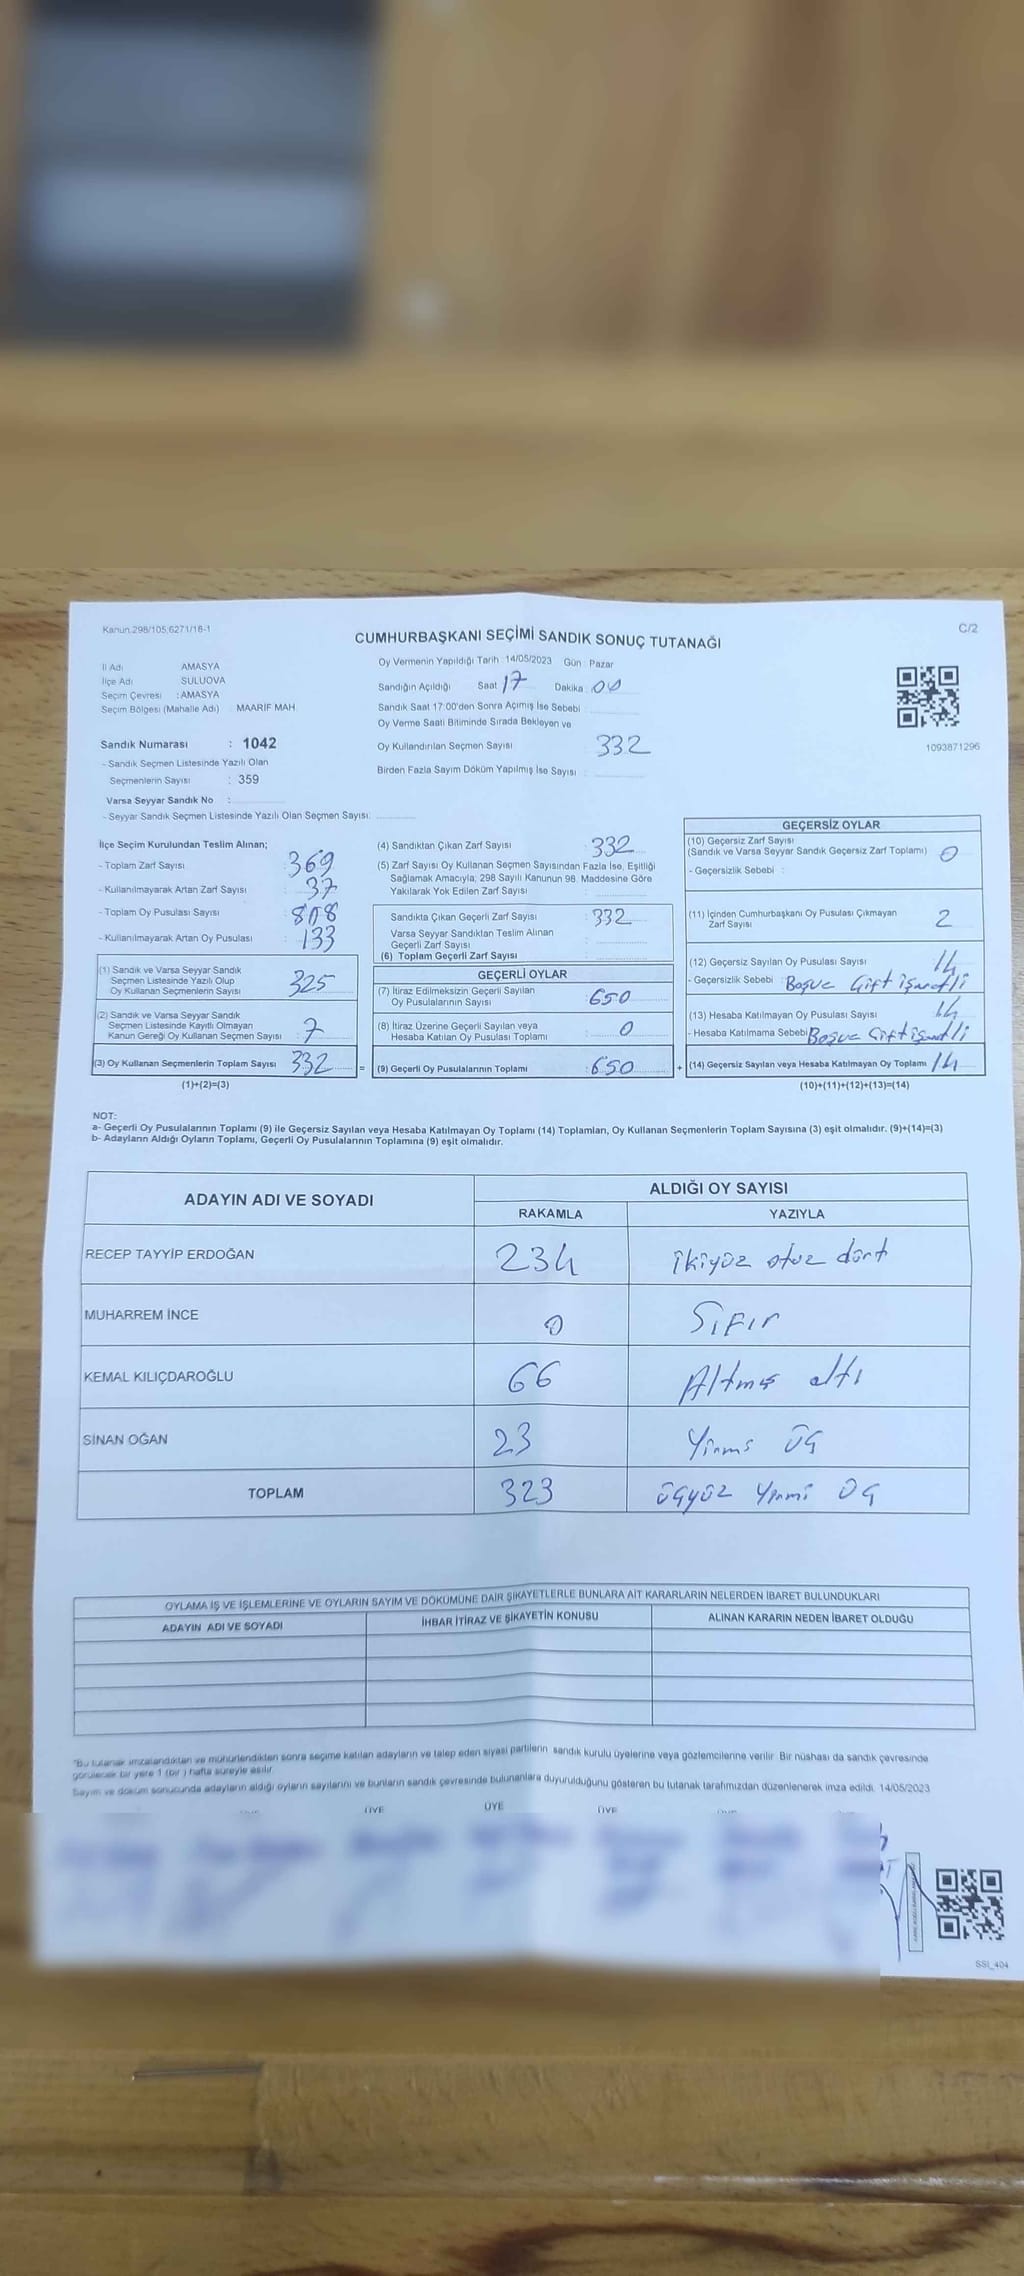 Kanun.298/105,6271/16-1
C/2
CUMHURBAŞKANI SEÇİMİ SANDIK SONUÇ TUTANAĞI
İl Adı AMASYA
İlçe Adı SULUOVA
Seçim Çevresi : AMASYA
Seçim Bölgesi (Mahalle Adı) : MAARİF MAH.
Sandık Numarası : 1042
- Sandık Seçmen Listesinde Yazılı Olan
Seçmenlerin Sayısı : 359
Varsa Seyyar Sandık No :
- Seyyar Sandık Seçmen Listesinde Yazılı Olan Seçmen Sayısı:
Oy Vermenin Yapıldığı Tarih : 14/05/2023 Gün : Pazar
Sandığın Açıldığı Saat 17 Dakika 00
Sandık Saat 17:00'den Sonra Açımış İse Sebebi
Oy Verme Saati Bitiminde Sırada Bekleyen ve
Oy Kullandırılan Seçmen Sayısı 332
Birden Fazla Sayım Döküm Yapılmış İse Sayısı :
1093871296
İlçe Seçim Kurulundan Teslim Alınan;
- Toplam Zarf Sayısı : 369
- Kullanılmayarak Artan Zarf Sayısı : 37
- Toplam Oy Pusulası Sayısı : 808
- Kullanılmayarak Artan Oy Pusulası : 133
(1) Sandık ve Varsa Seyyar Sandık
Seçmen Listesinde Yazılı Olup
Oy Kullanan Seçmenlerin Sayısı 325
(2) Sandık ve Varsa Seyyar Sandık
Seçmen Listesinde Kayıtlı Olmayan
Kanun Gereği Oy Kullanan Seçmen Sayısı : 7
(3) Oy Kullanan Seçmenlerin Toplam Sayısı 332 =
(1)+(2)=(3)
(4) Sandıktan Çıkan Zarf Sayısı : 332
(5) Zarf Sayısı Oy Kullanan Seçmen Sayısından Fazla İse, Eşitliği
Sağlamak Amacıyla; 298 Sayılı Kanunun 98. Maddesine Göre
Yakılarak Yok Edilen Zarf Sayısı :
Sandıkta Çıkan Geçerli Zarf Sayısı : 332
Varsa Seyyar Sandıktan Teslim Alınan
Geçerli Zarf Sayısı :
(6) Toplam Geçerli Zarf Sayısı :
GEÇERLİ OYLAR
(7) İtiraz Edilmeksizin Geçerli Sayılan
Oy Pusulalarının Sayısı : 650
(8) İtiraz Üzerine Geçerli Sayılan veya
Hesaba Katılan Oy Pusulası Toplamı : 0
(9) Geçerli Oy Pusulalarının Toplamı : 650 +
GEÇERSİZ OYLAR
(10) Geçersiz Zarf Sayısı
(Sandık ve Varsa Seyyar Sandık Geçersiz Zarf Toplamı) : 0
- Geçersizlik Sebebi :
(11) İçinden Cumhurbaşkanı Oy Pusulası Çıkmayan
Zarf Sayısı 2
(12) Geçersiz Sayılan Oy Pusulası Sayısı 14
- Geçersizlik Sebebi : Boş ve Çift işaretli
(13) Hesaba Katılmayan Oy Pusulası Sayısı 14
- Hesaba Katılmama Sebebi Boş ve Çift işaretli
(14) Geçersiz Sayılan veya Hesaba Katılmayan Oy Toplamı 14
(10)+(11)+(12)+(13)=(14)
NOT:
a- Geçerli Oy Pusulalarının Toplamı (9) ile Geçersiz Sayılan veya Hesaba Katılmayan Oy Toplamı (14) Toplamları, Oy Kullanan Seçmenlerin Toplam Sayısına (3) eşit olmalıdır. (9)+(14)=(3)
b- Adayların Aldığı Oyların Toplamı, Geçerli Oy Pusulalarının Toplamına (9) eşit olmalıdır.
ADAYIN ADI VE SOYADI ALDIĞI OY SAYISI
RAKAMLA YAZIYLA
RECEP TAYYİP ERDOĞAN 234 ikiyüz otuz dört
MUHARREM İNCE 0 Sıfır
KEMAL KILIÇDAROĞLU 66 Altmış altı
SİNAN OĞAN 23 Yirmi üç
TOPLAM 323 üçyüz yirmi üç
OYLAMA İŞ VE İŞLEMLERİNE VE OYLARIN SAYIM VE DÖKÜMÜNE DAİR ŞİKAYETLERLE BUNLARA AİT KARARLARIN NELERDEN İBARET BULUNDUKLARI
ADAYIN ADI VE SOYADI İHBAR İTİRAZ VE ŞİKAYETİN KONUSU ALINAN KARARIN NEDEN İBARET OLDUĞU
"Bu tutanak imzalandıktan ve mühürlendikten sonra seçime katılan adayların ve talep eden siyasi partilerin sandık kurulu üyelerine veya gözlemcilerine verilir. Bir nüshası da sandık çevresinde
görülecek bir yere 1 (bir) hafta süreyle asılır.
Sayım ve döküm sonucunda adayların aldığı oyların sayılarını ve bunların sandık çevresinde bulunanlara duyurulduğunu gösteren bu tutanak tarafımızdan düzenlenerek imza edildi. 14/05/2023
ÜYE ÜYE ÜYE
SSİ_404